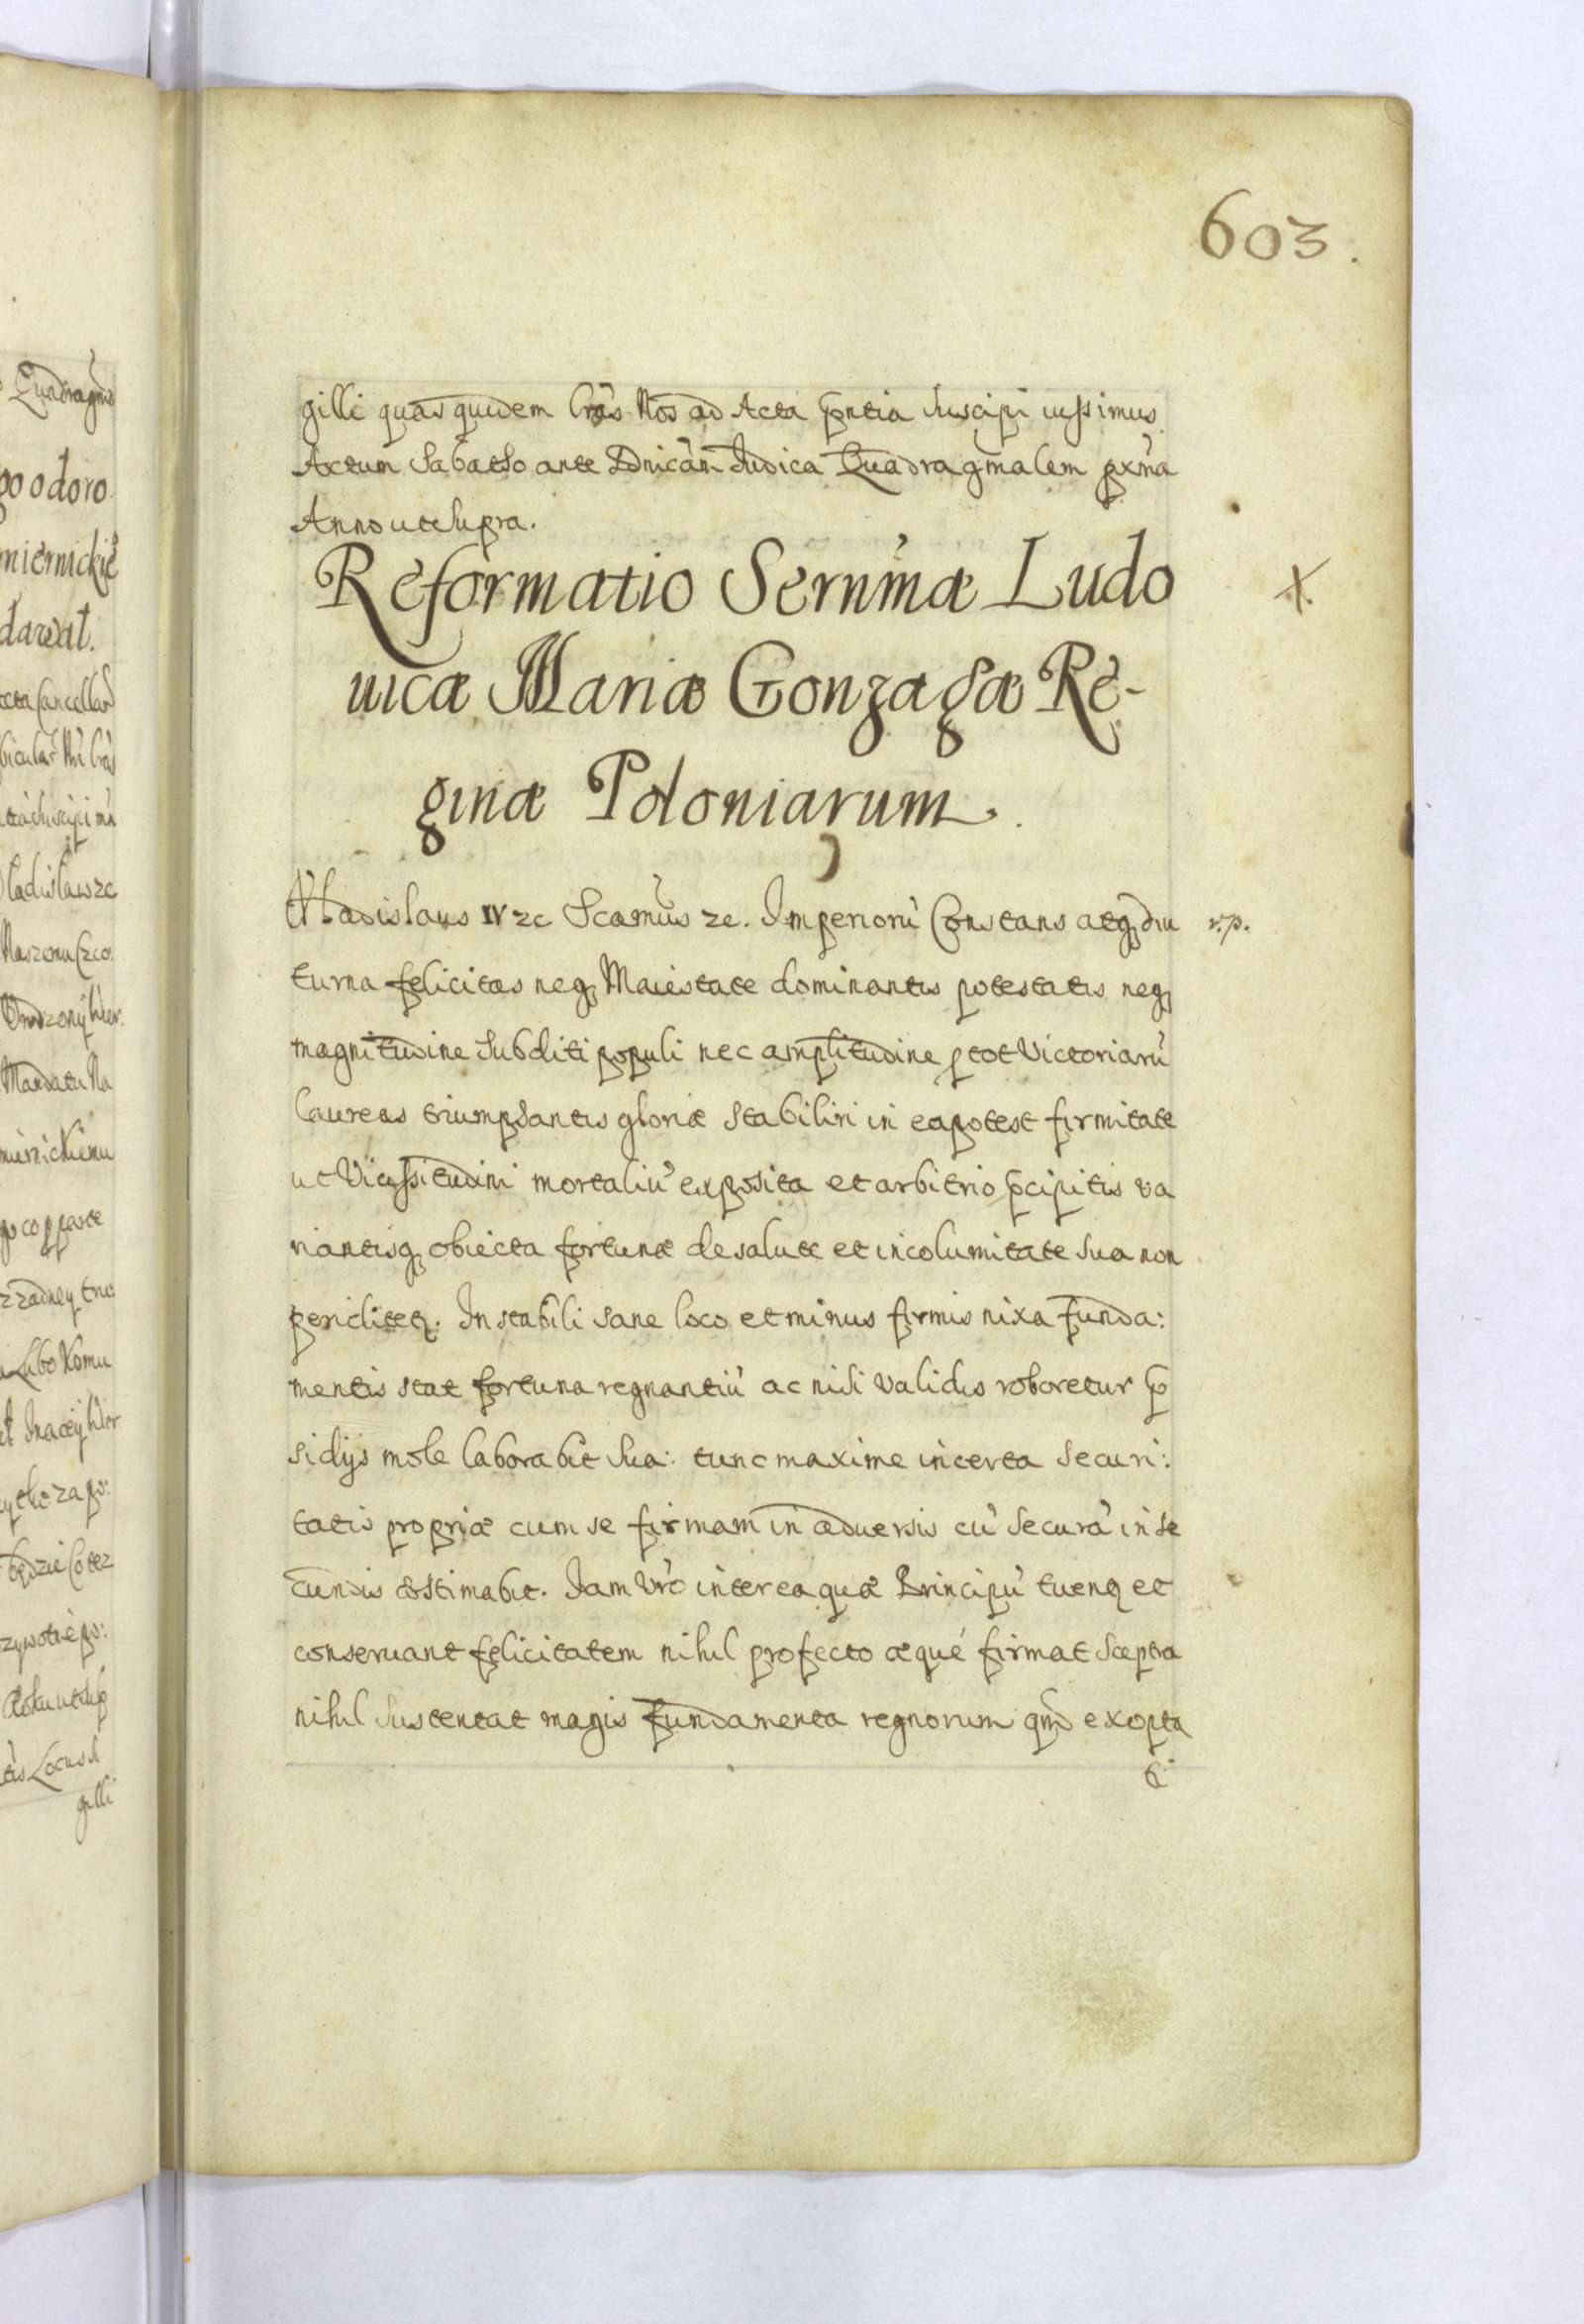 603.
gilli quas quidem Lr̃as Nos ad Acta p̃ntia suscipi iussimus.
Actum Sabatho ante Dnicam̃ Judica Quadragm̃alem pxm̃a
Anno ut supra.
Reformatio Sernm̃æ Ludo
uicæ Mariæ Gonzagæ Re-
ginæ Poloniarum.
Vladislaus IV zc Scamũs zc. Imperiorũ Constans atq3 diu
r.p.
turna felicitas neq3 Maiestate dominantis potestatis neq3
magnitudine subditi populi nec amplitudine p tot Victoriarũ
laureas triumphantis gloriæ stabiliri in ea potest firmitate
ut Vicissitudini mortaliũ exposita et arbitrio p̃cipitis va
riantisq3 obiecta fortunæ de salute et incolumitate sua non
periclitet̃. Instabili sane loco et minus firmis nixa funda:
mentis stat fortuna regnantiũ ac nisi validis roboretur p̃
sidijs mole laborabit sua: tunc maxime incerta securi:
tatis propriæ cum se firmam in adversis cũ securã in se
cundis æstimabit. Jam vr̃o inter ea quæ Principũ tuent̃ et
conseruant felicitatem nihil profecto æqué firmat sceptra
nihil sustentat magis fundamenta regnorum qm̃ exopta
ti
Quadragm̃
go odoro
miernickie
darwal.
gilli